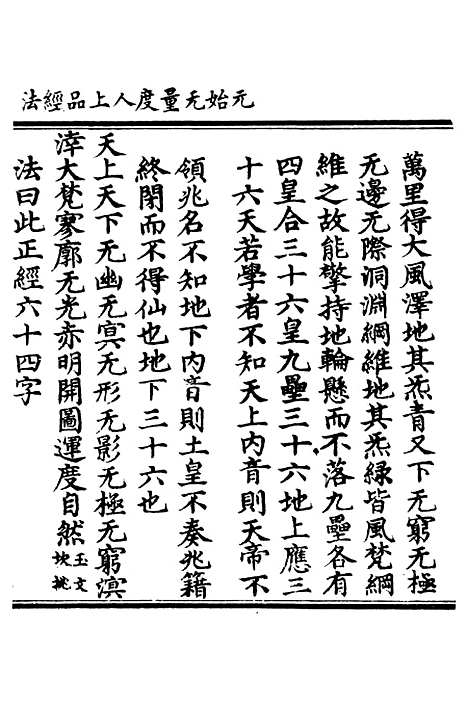 元始无量度人上品經法
萬里得大風澤地其炁青又下无窮无極
无邊无際洞淵綱維地其炁綠皆風梵綱
維之故能擎持地輪懸而不落九壘各有
四皇合三十六皇九壘三十六地上應三
十六天若學者不知天上內音則天帝不
領兆名不知地下內音則土皇不奏兆籍
終閉而不得仙也地下三十六也
天上天下无幽无冥无形无影无極无窮溟
涬大梵寥廓无光赤明開圖運度自然玉文坎挑
法曰此正經六十四字